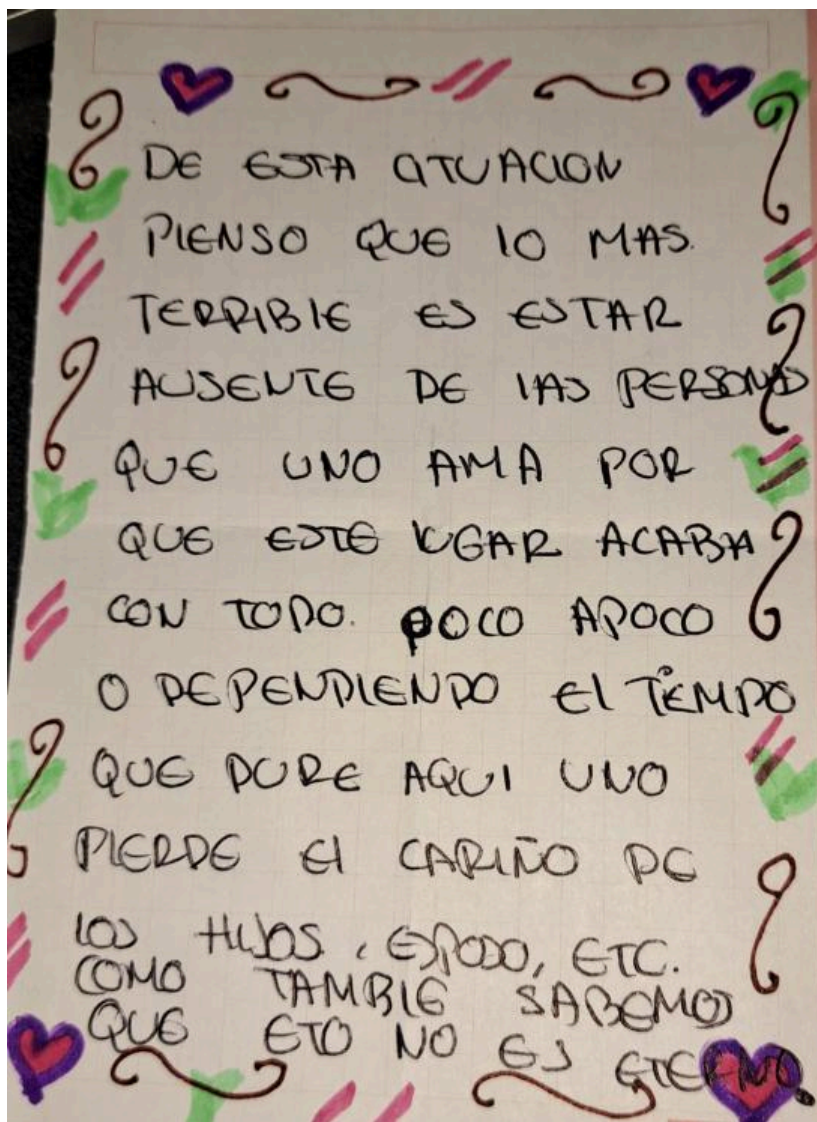 DE ESTA CITUACION
PIENSO QUE LO MAS.
TERRIBLE ES ESTAR
AUSENTE DE LAS PERSONAS
QUE UNO AMA POR
QUE ESTE LUGAR ACABA
CON TODO. POCO APOCO
O DEPENDIENDO El TIEMPO
QUE DURE AQUI UNO
PIERDE El CARIÑO DE
LOS HIJOS, ESPOSO, ETC.
COMO TAMBIE SABEMOS
QUE ETO NO ES ETERNO.